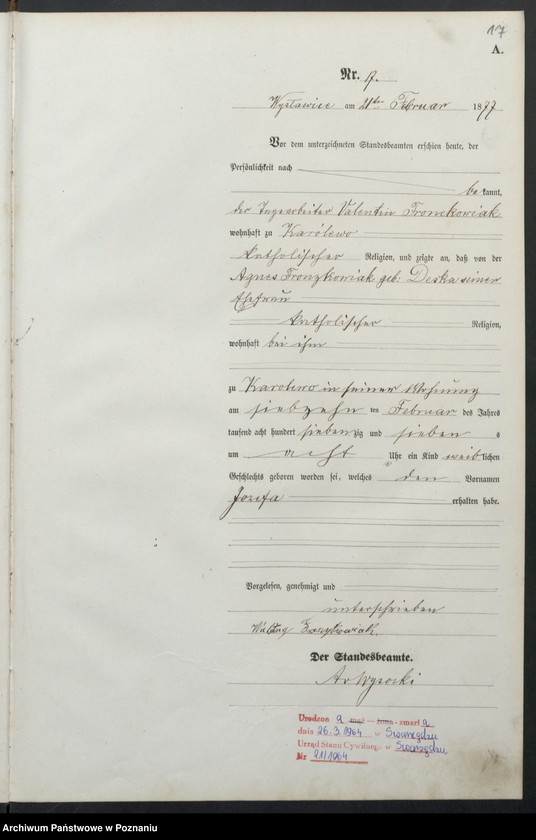 17
A.
Nr. 17.
am 21ten Februar 1877
Vor dem unterzeichneten Standesbeamten erschien heute, der
Persönlichkeit nach
bekannt,
der Valentin Fronckowiak
wohnhaft zu Karólewo
katholischer Religion, und zeigte an, daß von der
Agnes Fronzkowiak geb: Deska seiner
Ehefrau
katholischer Religion,
wohnhaft bei ihm
zu Karolewo in seiner Wohnung
am siebzehn ten Februar des Jahres
tausend acht hundert siebenzig und sieben s
um acht Uhr ein Kind weiblichen
Geschlechts geboren worden sei, welches den Vornamen
Jozefa erhalten habe.
Vorgelesen, genehmigt und
unterschrieben
Der Standesbeamte.
Wysocki
Urodzon a mąż — żona - zmarł a
dnia 26.3.1964 w Swarzędzu
Urząd Stanu Cywilnego w Swarzędzu
Nr 21/1964
Archiwum Państwowe w Poznaniu